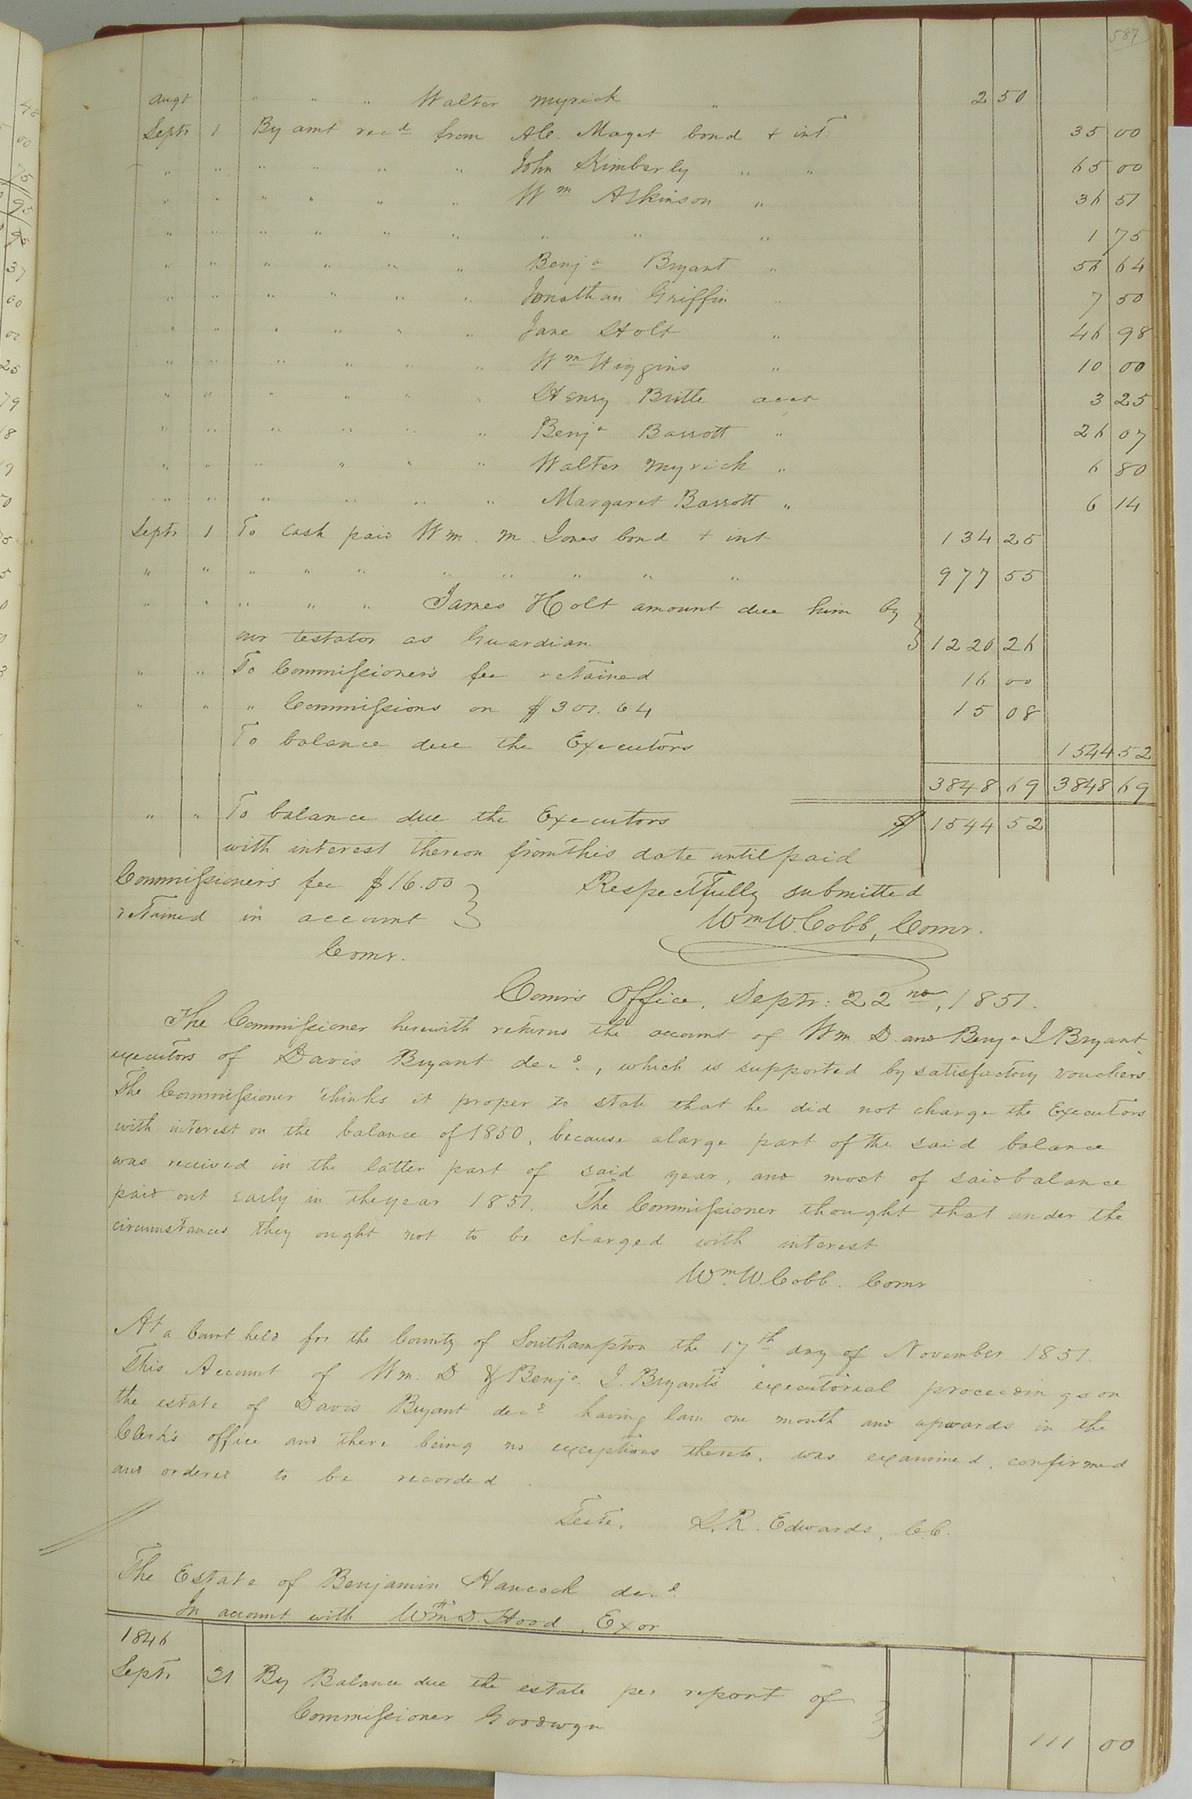 587
Augt " " " Walter Myrick " 2 50
Septr 1 By amt recd from Al. Maget bond + int 35 00
" " " " " " John Kimberly " " 65 00
" " " " " " Wm Atkinson " 36 51
" " " " " " " " " 1 75
" " " " " " Benja Bryant " 56 64
" " " " " " Jonathan Griffin " 7 50
" " " " " " Jane Holt " 46 98
" " " " " " Wm Wiggins " 10 00
" " " " " " Henry Britle acct 3 25
" " " " " " Benja Barrott " 26 07
" " " " " " Walter Myrick " 6 80
" " " " " " Margaret Barrott " 6 14
Septr 1 To cash paid Wm. M. Jones bond + int 134 25
" " " " " " " " " " 977 55
" " " " " James Holt amount due him by
our testator as Guardian 1220 26
" " To Commissioner's fee retained 16 00
" " " Commissions on $301.64 15 08
To balance due the Executors 1544 52
3848 69 3848 69
" " To balance due the Executors $ 1544 52
with interest thereon from this date until paid
Commissioner's fee $16.00
retained in account
Comr.
Respectfully submitted
Wm W. Cobb, Comr.
Comr's Office, Septr: 22nd, 1851.
The Commissioner herewith returns the account of Wm. D. and Benja J Bryant
executors of Davis Bryant decd., which is supported by satisfactory vouchers
The Commissioner thinks it proper to state that he did not charge the Executors
with interest on the balance of 1850, because a large part of the said balance
was received in the latter part of said year, and most of said balance
paid out early in the year 1851. The Commissioner thought that under the
circumstances they ought not to be charged with interest
Wm. W. Cobb. Comr
At a Court held for the County of Southampton the 17th day of November 1851
This Account of Wm. D & Benja. J. Bryant's executorial proceedings on
the estate of Davis Bryant decd having lain one month and upwards in the
Clerk's office and there being no exceptions thereto, was examined, confirmed
and ordered to be recorded.
Teste, L. R. Edwards, C.C.
The Estate of Benjamin Hancock decd.
In account with Wm D. Hood, Exor
1846
Septr 21 By Balance due the estate per report of
Commissioner Goodwyn 111 00